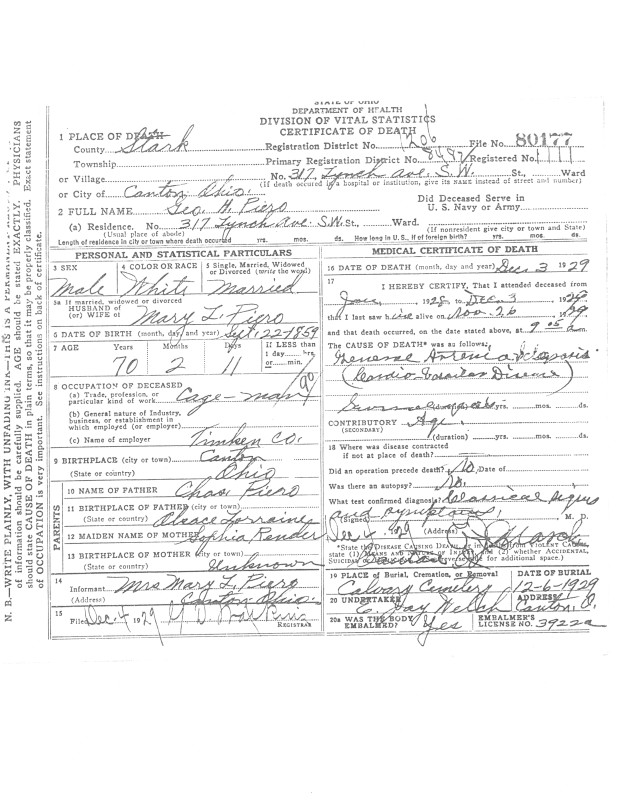 STATE OF OHIO
DEPARTMENT OF HEALTH
DIVISION OF VITAL STATISTICS
CERTIFICATE OF DEATH
1 PLACE OF DEATH
County Stark
Registration District No. 1206 File No. 80177
Township Primary Registration District No. 8487 Registered No. 1111
or Village No. 317 Lynch Ave. S.W. St., Ward
(If death occured in a hospital or institution, give its NAME instead of street and number)
or City of Canton Ohio.
Did Deceased Serve in
U. S. Navy or Army
2 FULL NAME Geo. H. Piero
(a) Residence. No. 317 Lynch Ave S.W. St., Ward.
(Usual place of abode)
(If nonresident give city or town and State)
Length of residence in city or town where death occurred yrs. mos. ds. How long in U. S., if of foreign birth? yrs. mos. ds.
PERSONAL AND STATISTICAL PARTICULARS
3 SEX 4 COLOR OR RACE 5 Single, Married, Widowed
or Divorced (write the word)
Male White Married
5a If married, widowed or divorced
HUSBAND of
(or) WIFE of Mary L. Piero
6 DATE OF BIRTH (month, day, and year) Sept. 22-1859
7 AGE Years Months Days If LESS than
1 day hrs.
or min.
70 2 11
90
8 OCCUPATION OF DECEASED
(a) Trade, profession, or
particular kind of work Cage-man
(b) General nature of Industry,
business, or establishment in
which employed (or employer)
(c) Name of employer Timken Co.
9 BIRTHPLACE (city or town) Canton
(State or country) Ohio
PARENTS
10 NAME OF FATHER Chas. Piero
11 BIRTHPLACE OF FATHER (city or town)
(State or country) Alsace Lorraine
12 MAIDEN NAME OF MOTHER Sophia Render
13 BIRTHPLACE OF MOTHER (city or town)
(State or country) Unknown
14
Informant Mrs Mary L. Piero
(Address) Canton Ohio.
15
Filed Dec. 4 1929
REGISTRAR
MEDICAL CERTIFICATE OF DEATH
16 DATE OF DEATH (month, day and year) Dec. 3 1929
17
I HEREBY CERTIFY, That I attended deceased from
Jan. 1928 to Dec. 3 1929
that I last saw him alive on Nov. 26 1929
and that death occurred, on the date stated above, at 9 05 a m.
The CAUSE OF DEATH* was as follows:
General Arteriosclerosis
(Cardio-Vascular Disease)
(duration) yrs. mos. ds.
CONTRIBUTORY Age.
(SECONDARY)
(duration) yrs. mos. ds.
18 Where was disease contracted
if not at place of death?
Did an operation precede death? No. Date of
Was there an autopsy? No.
What test confirmed diagnosis? Classical signs
and symptoms.
(Signed) M. D.
Dec 4 1929 (Address)
*State the DISEASE CAUSING DEATH, or in deaths from VIOLENT CAUSES,
state (1) MEANS AND NATURE OF INJURY, and (2) whether ACCIDENTAL,
SUICIDAL or HOMICIDAL. (See reverse side for additional space.)
19 PLACE of Burial, Cremation, or Removal DATE OF BURIAL
Calvary Cemetery 12-6-1929
20 UNDERTAKER ADDRESS
C. Jay Welch Canton O.
20a WAS THE BODY
EMBALMED? Yes
EMBALMER'S
LICENSE NO. 3922a
N. B.—WRITE PLAINLY, WITH UNFADING INK—THIS IS A PERMANENT
of information should be carefully supplied. AGE should be stated EXACTLY. PHYSICIANS
should state CAUSE OF DEATH in plain terms, so that it may be properly classified. Exact statement
of OCCUPATION is very important. See instructions on back of certificate.